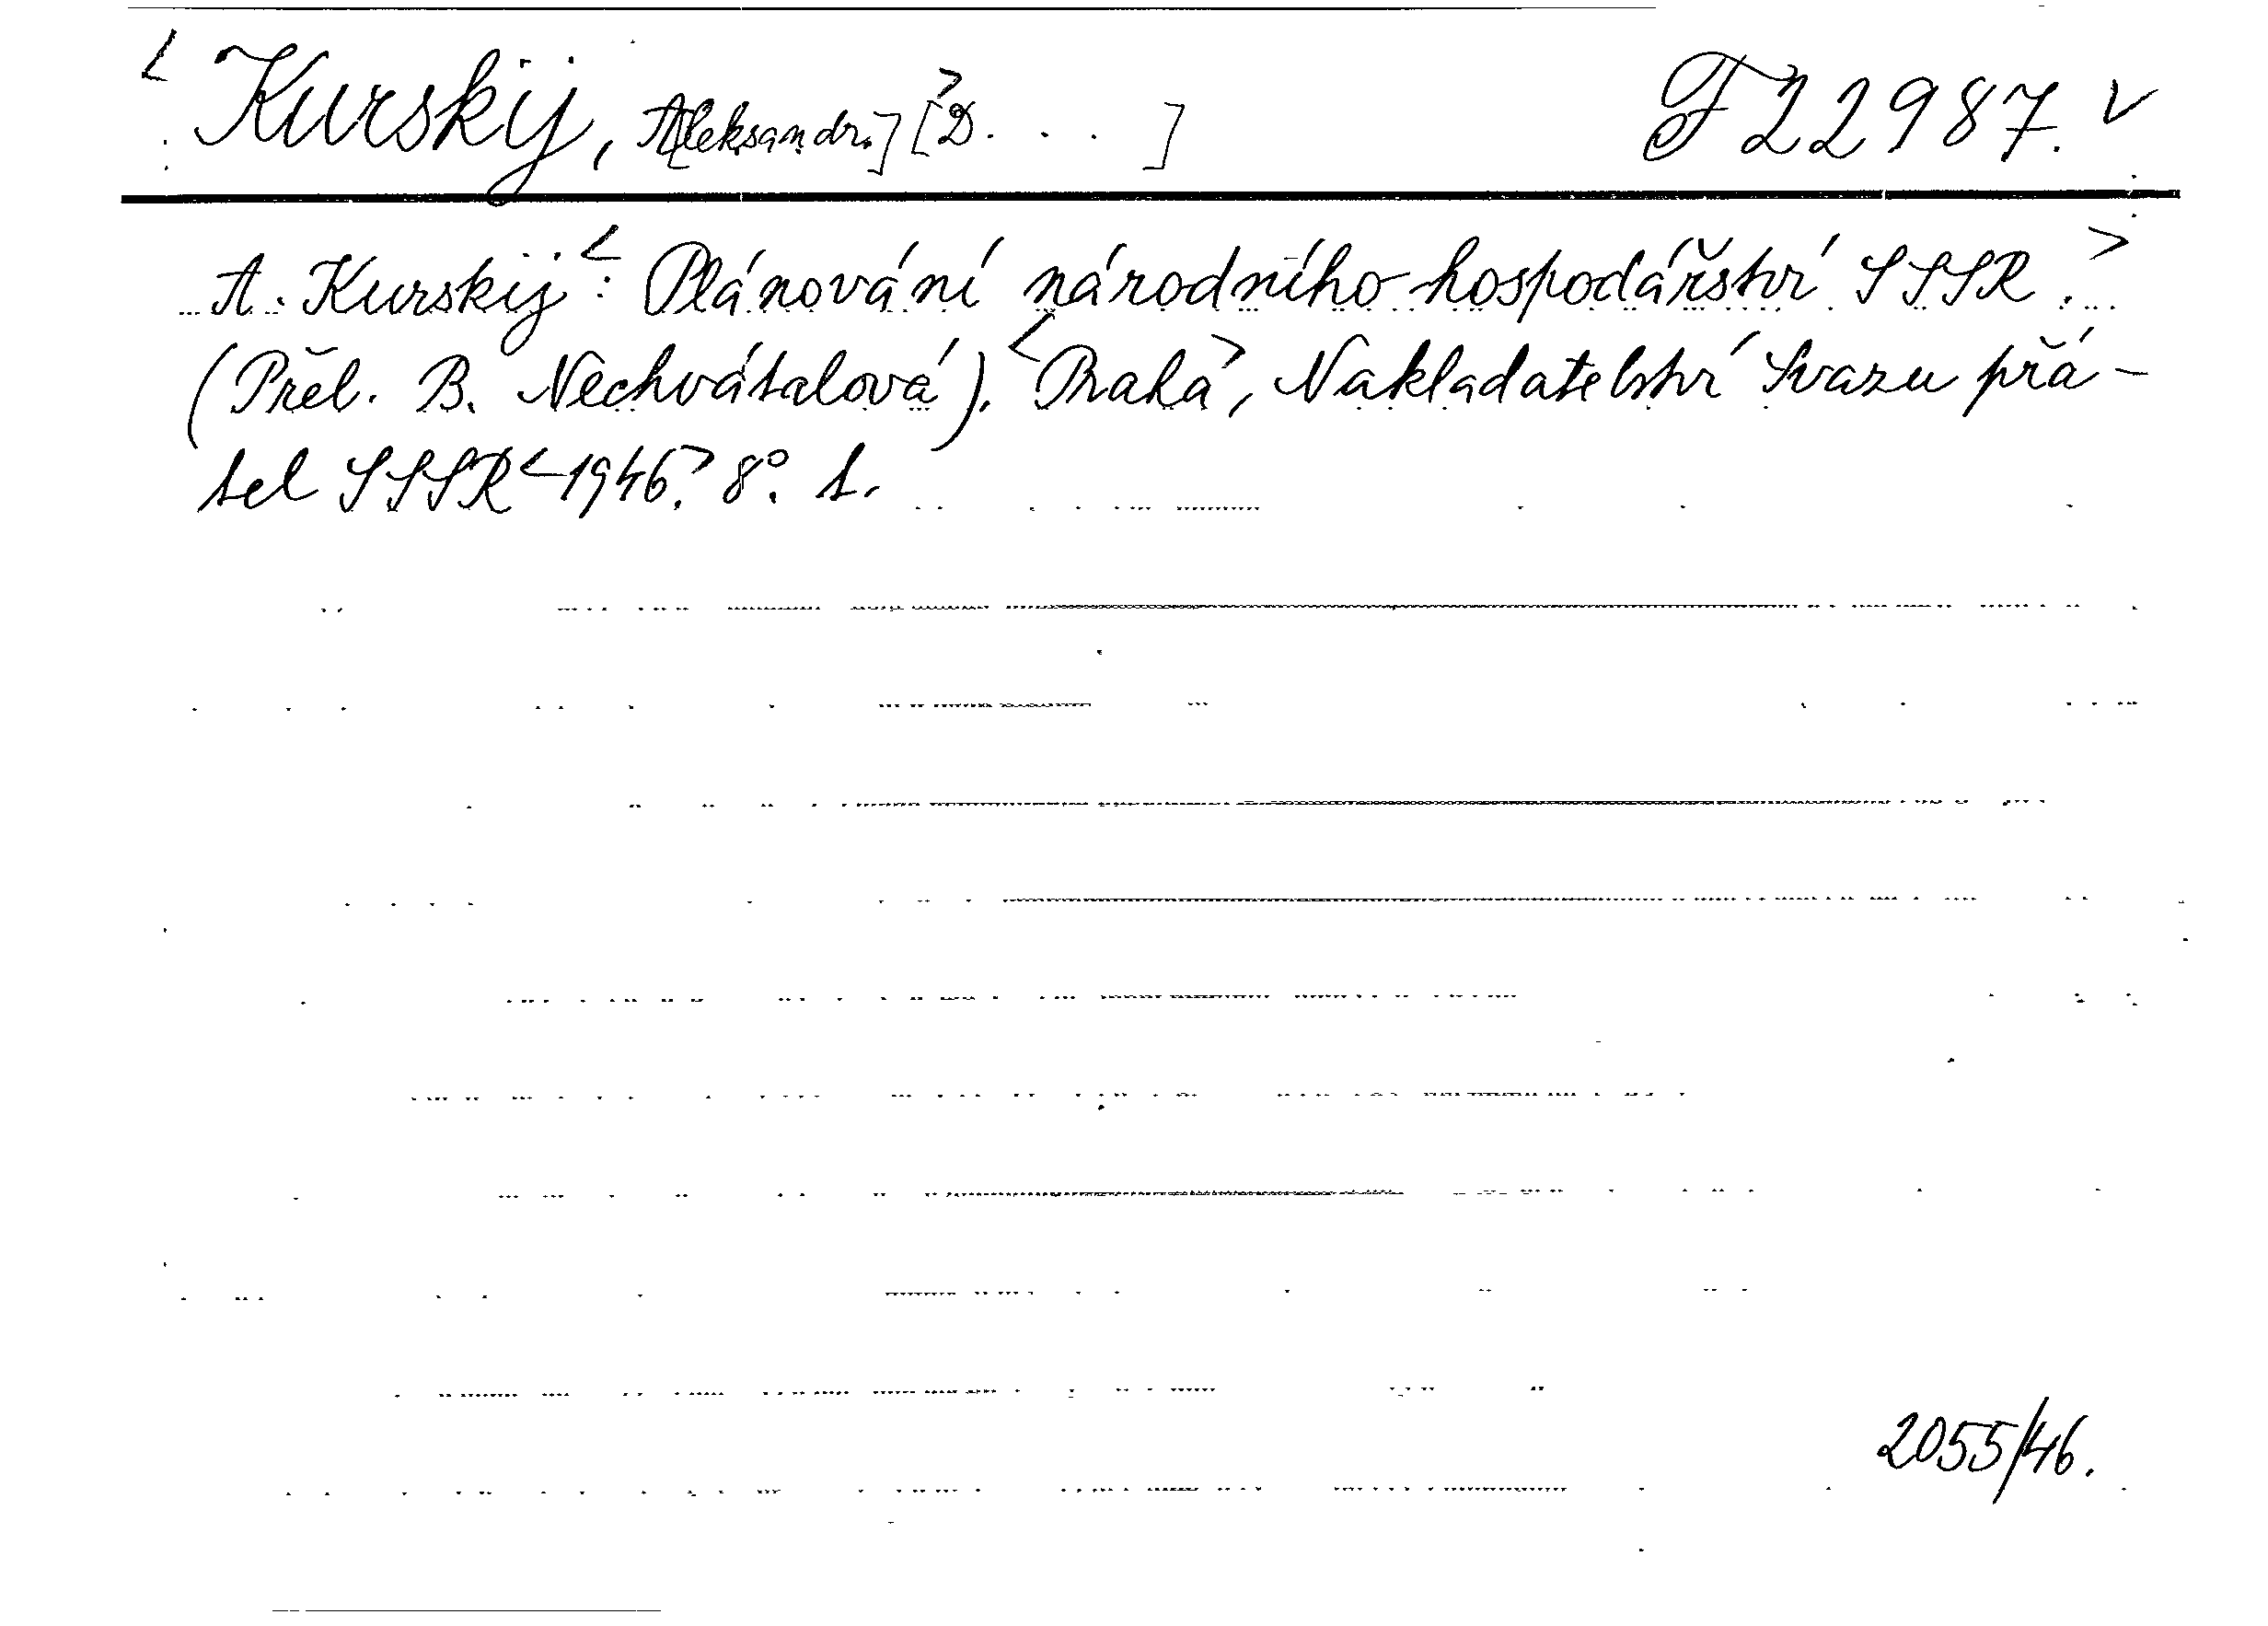 < Kurskij, A[leksandr] [D. . . ]> F 22987. v
A. Kurskij <: Plánování národního hospodářství SSSR. >
(Přel. B. Nechvátalová). <Praha>, Nakladatelství Svazu přá-
tel SSSR <1946>. 8°. s.
2055/46.